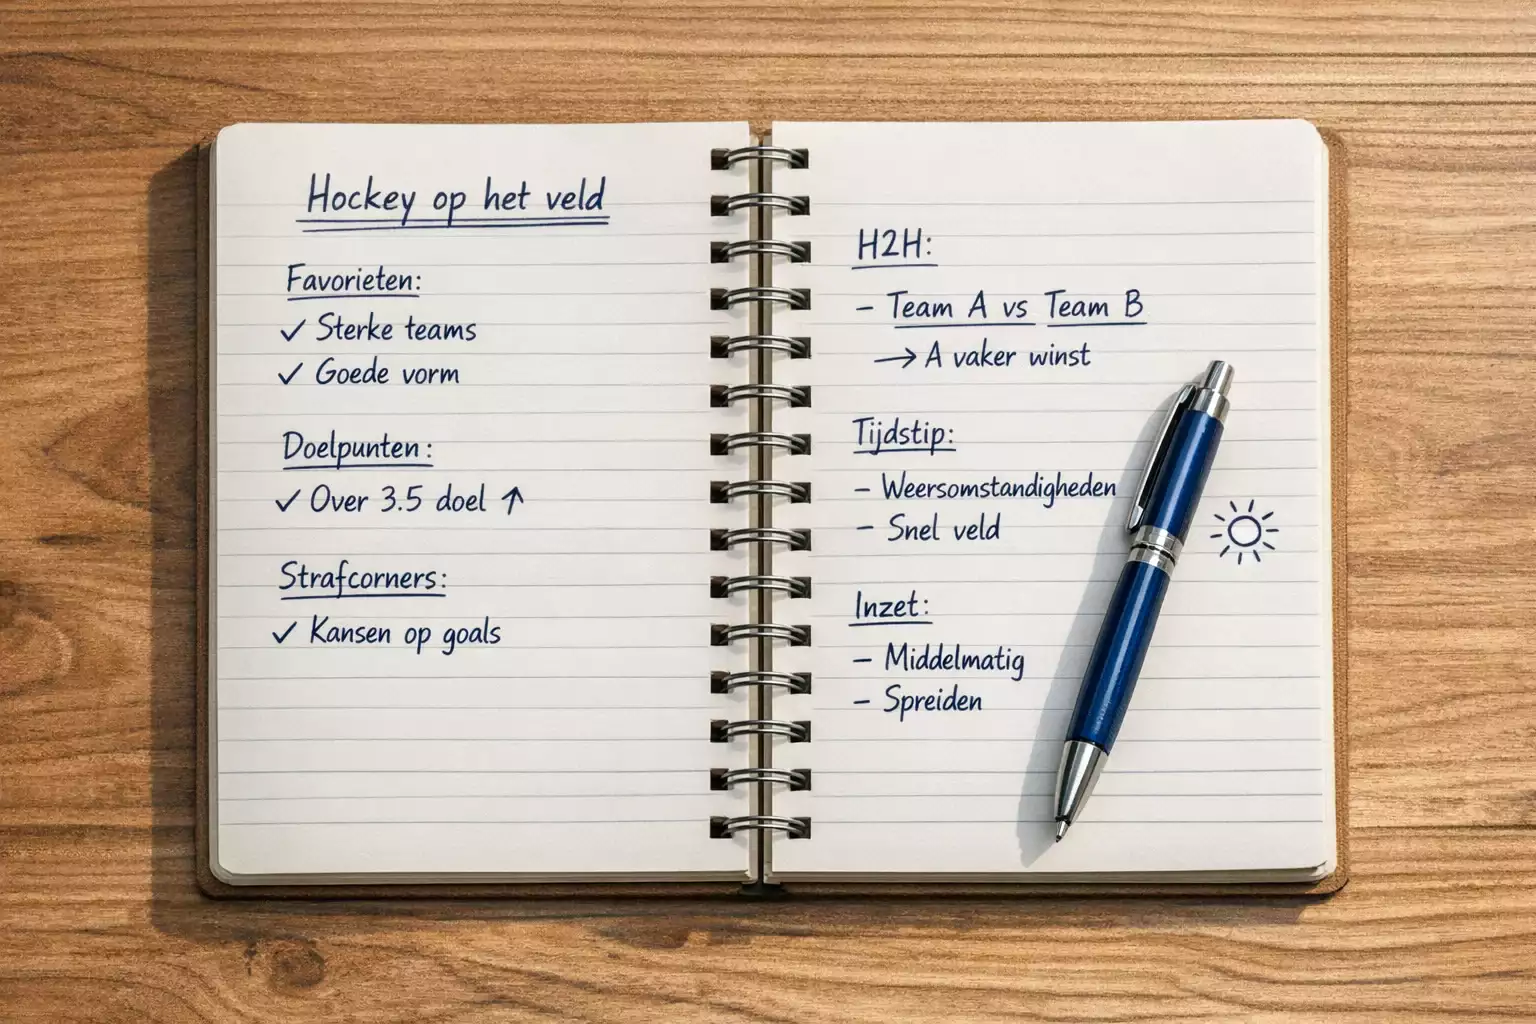 Hockey op het veld
Favorieten:
✓ Sterke teams
✓ Goede vorm
Doelpunten:
✓ Over 3.5 doel ↑
Strafcorners:
✓ Kansen op goals
H2H:
- Team A vs Team B
→ A vaker winst
Tijdstip:
- Weersomstandigheden
- Snel veld
Inzet:
- Middelmatig
- Spreiden